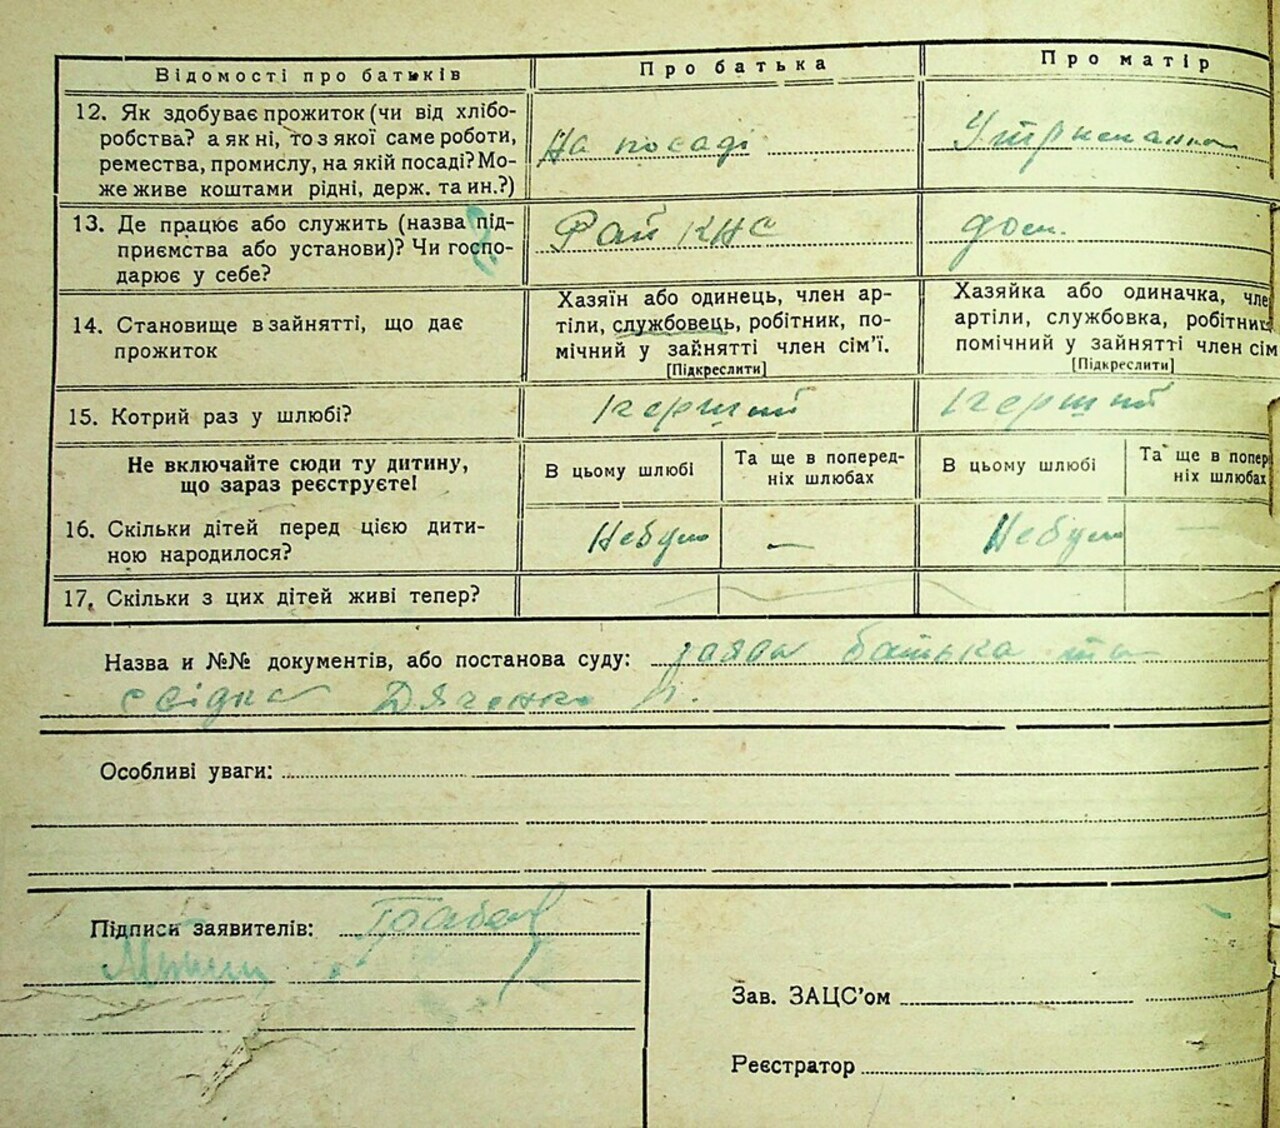 Відомості про батьків
Про батька
Про матір
12. Як здобуває прожиток (чи від хлібо-
робства? а як ні, то з якої саме роботи,
ремества, промислу, на якій посаді? Мо-
же живе коштами рідні, держ. та ин.?)
На посаді
13. Де працює або служить (назва під-
приємства або установи)? Чи госпо-
дарює у себе?
Рай КНС
дом.
14. Становище в зайнятті, що дає
прожиток
Хазяїн або одинець, член ар-
тіли, службовець, робітник, по-
мічний у зайнятті член сім'ї.
[Підкреслити]
Хазяйка або одиначка, чле
артіли, службовка, робітниц
помічний у зайнятті член сім
[Підкреслити]
15. Котрий раз у шлюбі?
перший
перший
Не включайте сюди ту дитину,
що зараз реєструєте!
В цьому шлюбі
Та ще в поперед-
ніх шлюбах
В цьому шлюбі
Та ще в попер
ніх шлюбах
16. Скільки дітей перед цією дити-
ною народилося?
Небуло
—
Небуло
—
17. Скільки з цих дітей живі тепер?
Назва и №№ документів, або постанова суду: заява батька та
свідка Дяченко
Особливі уваги:
Підписи заявителів:
Зав. ЗАЦС'ом
Реєстратор